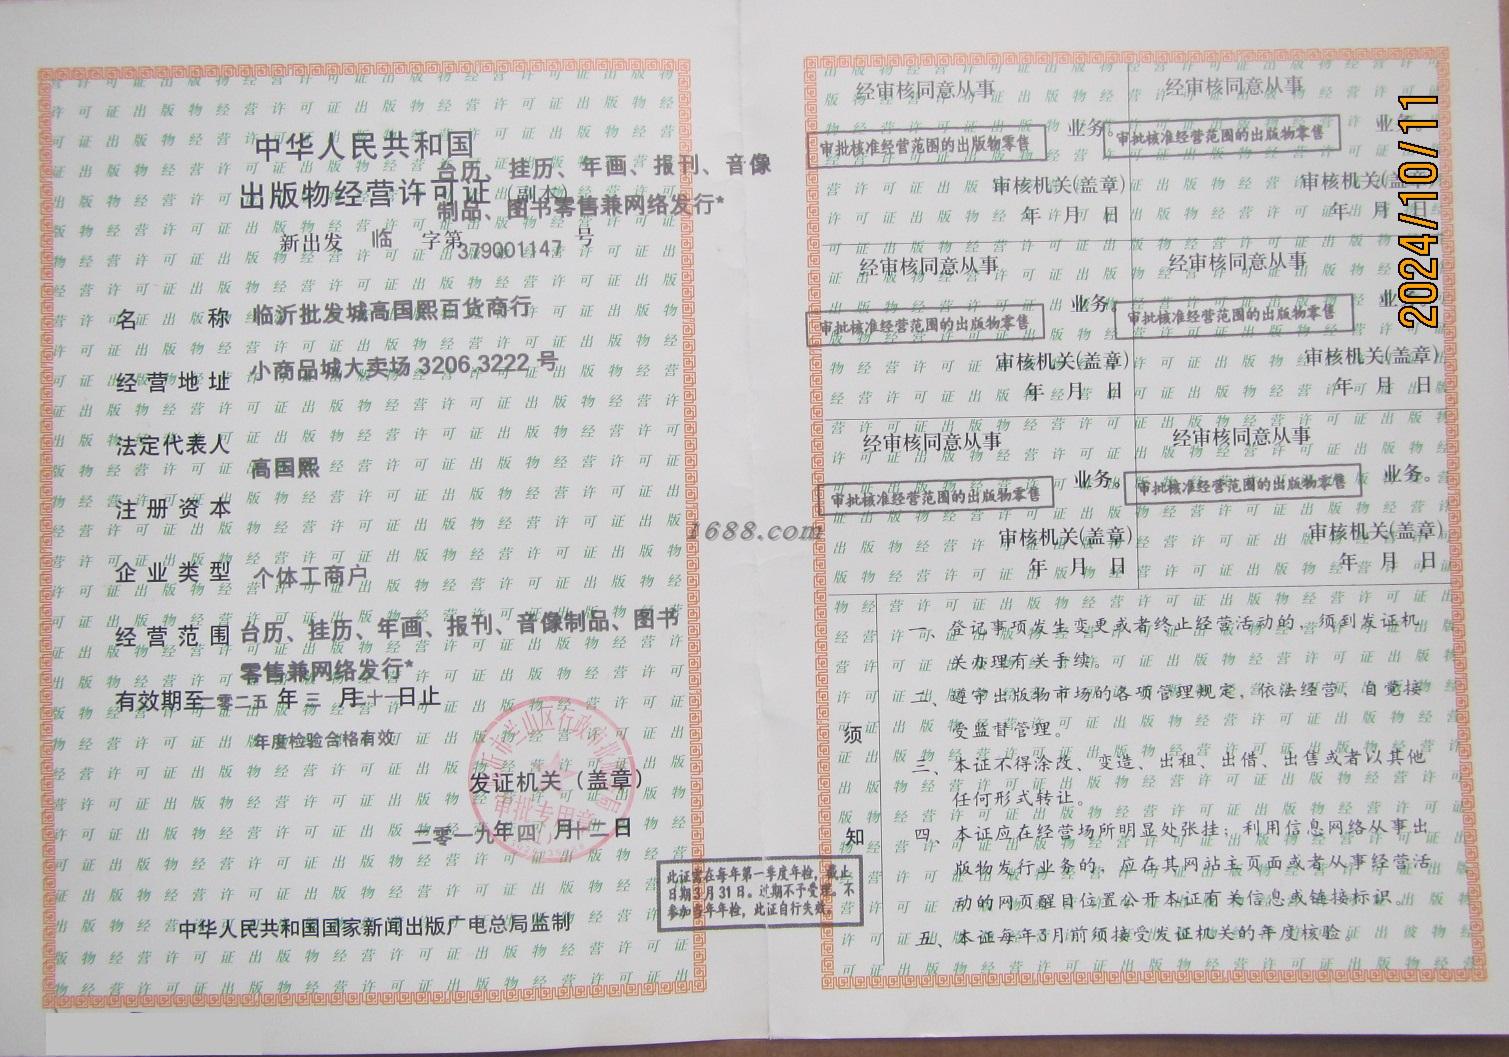 中华人民共和国
台历、挂历、年画、报刊、音像
出版物经营许可证（副本）
制品、图书零售兼网络发行*
新出发 临 字第379001147号
名 称 临沂批发城高国熙百货商行
经营地址 小商品城大卖场 3206,3222 号
法定代表人 高国熙
注册资本
企业类型 个体工商户
经营范围 台历、挂历、年画、报刊、音像制品、图书
零售兼网络发行*
有效期至二零二五年三月三十一日止
年度检验合格有效
发证机关（盖章）
审批专用章
二零一九年四月十二日
中华人民共和国国家新闻出版广电总局监制
此证需在每年第一季度年检，截止
日期3月31日。过期不予受理。不
参加当年年检，此证自行失效。
1688.com
经审核同意从事
审批核准经营范围的出版物零售 业务。
审核机关(盖章)
年 月 日
经审核同意从事
审批核准经营范围的出版物零售 业务。
审核机关(盖章)
年 月 日
经审核同意从事
审批核准经营范围的出版物零售 业务。
审核机关(盖章)
年 月 日
经审核同意从事
审批核准经营范围的出版物零售 业务。
审核机关(盖章)
年 月 日
经审核同意从事
审批核准经营范围的出版物零售 业务。
审核机关(盖章)
年 月 日
经审核同意从事
审批核准经营范围的出版物零售 业务。
审核机关(盖章)
年 月 日
须知
一、登记事项发生变更或者终止经营活动的，须到发证机
关办理有关手续。
二、遵守出版物市场的各项管理规定，依法经营、自觉接
受监督管理。
三、本证不得涂改、变造、出租、出借、出售或者以其他
任何形式转让。
四、本证应在经营场所明显处张挂；利用信息网络从事出
版物发行业务的，应在其网站主页面或者从事经营活
动的网页醒目位置公开本证有关信息或链接标识。
五、本证每年3月前须接受发证机关的年度核验。
2024/10/11